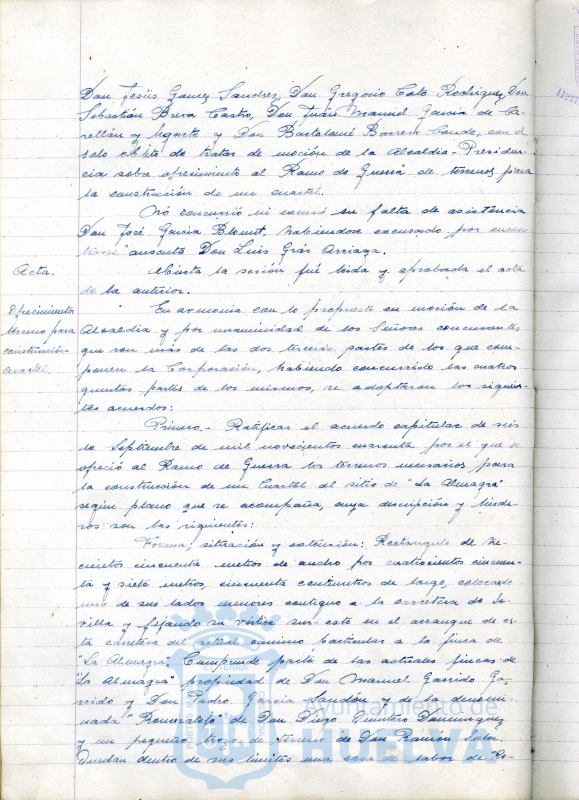 Don Jesús Gomez Sandrez, Don Gregorio Cato Rodriguez, Don
Sebastián Breva Castro, Don Juan Manuel Garcia de Ca-
rellán y Ugarte y Don Bartolomé Borrero Conde, con el
solo objeto de tratar de moción de la Alcaldia-Presiden-
cia sobre ofrecimiento al Ramo de Guerra de terrenos para
la construcción de un cuartel.
No concurrió ni excusó su falta de asistencia
Don José Garcia Blount, habiendose excusado por encon-
trarse ausente Don Luis Grás Arriaza.
Acta.
Abierta la sesión fué leida y aprobada el acta
de la anterior.
Ofrecimiento
terreno para
construcción
cuartel.
En armonia con lo propuesto en moción de la
Alcaldia y por unanimidad de los Señores concurrentes
que son más de las dos terceras partes de los que com-
ponen la Corporación, habiendo concurrido las cuatro
quintas partes de los mismos, se adoptaron los siguien-
tes acuerdos:
Primero.- Ratificar el acuerdo capitular de seis
de Septiembre de mil novecientos cuarenta por el que se
ofreció al Ramo de Guerra los terrenos necesarios para
la construcción de un Cuartel al sitio de "La Almagra"
según plano que se acompaña, cuya descripción y linde-
ros son los siguientes:
Forma, situación y extensión: Rectangulo de tre-
cientos cincuenta metros de ancho por cuatrocientos cincuen-
ta y siete metros, cincuenta centimetros de largo, colocado
uno de sus lados menores contiguo a la carretera de Se-
villa y fijando su vértice sur-este en el arranque de es-
ta carretera del actual camino particular a la finca de
"La Almagra". Comprende parte de las actuales fincas de
"La Almagra" propiedad de Don Manuel Garrido Ga-
rrido y Don Pedro Garcia Sandón y de la denomi-
nada "Romeralejo" de Don Diego Quintero Dominguez
y un pequeño trozo de terreno de Don Ramón
Quedan dentro de sus limites una casa de labor de "Ro-
Ayuntamiento de
HUELVA